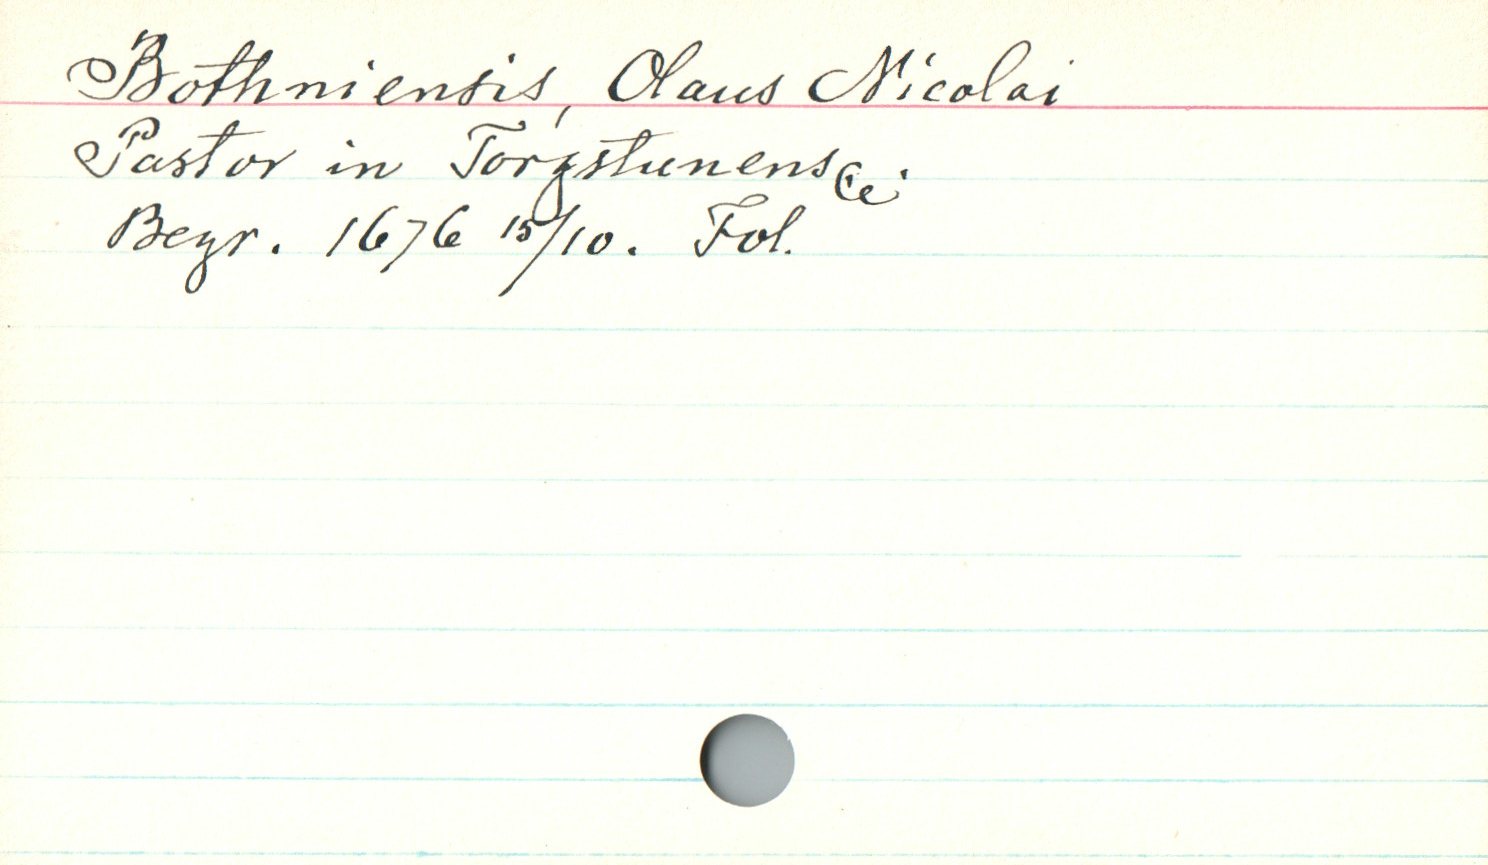 Bothniensis, Olaus Nicolai
Pastor in Torgstunensi.
Begr. 1676 15/10. Fol.